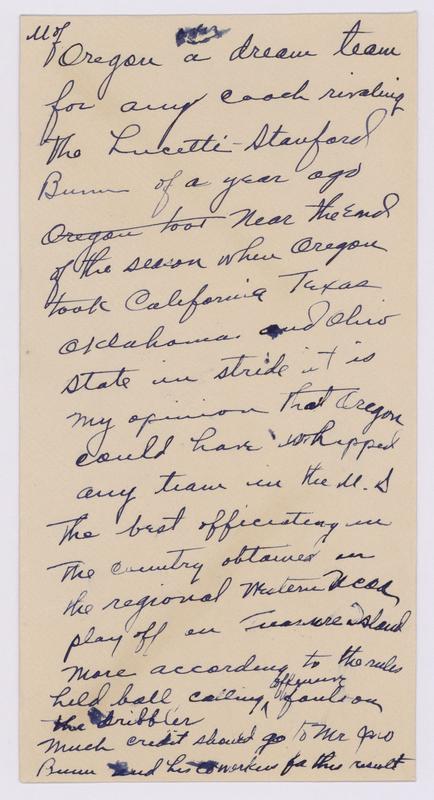 U of
Oregon a dream team
for any coach rivaling
The Lucetti-Stanford
Bunn of a year ago
Oregon took Near the End
of the season when Oregon
took California Texas
Oklahoma and Ohio
State in stride it is
my opinion that Oregon
could have whipped
any team in the U.S
The best officiating in
the country obtained in
the regional Western NCAA
play off on Treasure Island
more according to the rules
held ball calling offensive fouls on
the dribbler
Much credit should go to Mr Jno
Bunn and his coworkers for this result